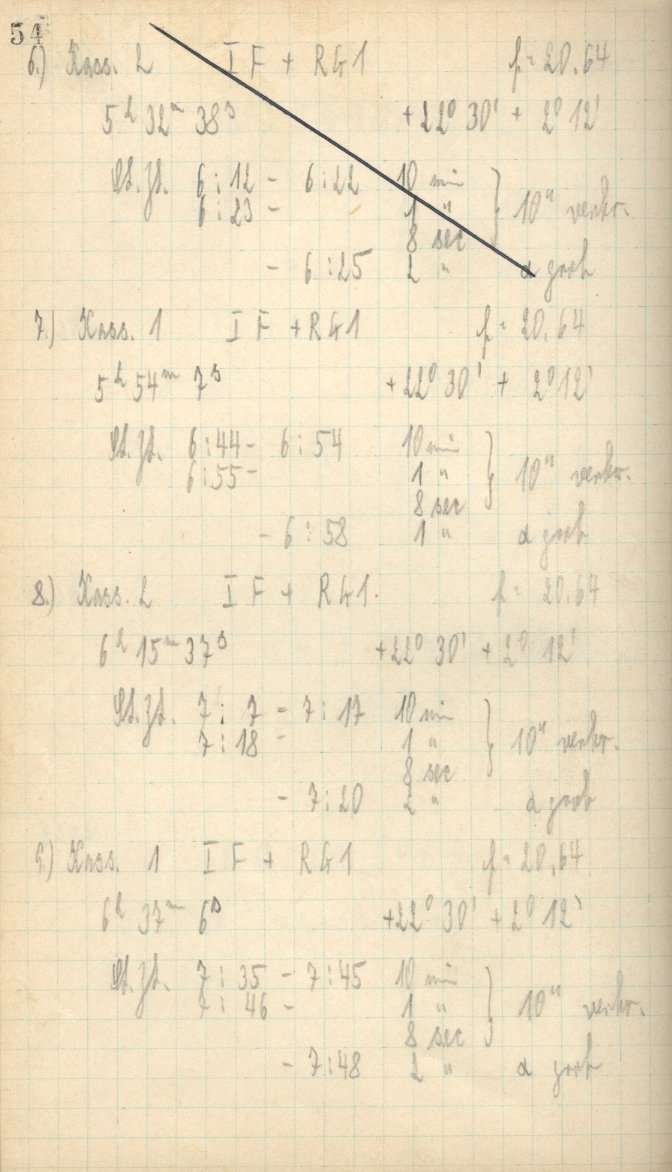 54
6.) Kass. 2 I F + RG1 f = 20.64
5h 32m 38s +22° 30' + 2° 12'
St.Zt. 6:12 - 6:22 10 min
6:23 - 1 " } 10" verkr.
8 sec
- 6:25 2 " α grob
7.) Kass. 1 I F + RG1 f = 20.64
5h 54m 7s +22° 30' + 2° 12'
St.Zt. 6:44 - 6:54 10 min
6:55 - 1 " } 10" verkr.
8 sec
- 6:58 1 " α grob
8.) Kass. 2 I F + RG1. f = 20.64
6h 15m 37s +22° 30' + 2° 12'
St.Zt. 7:7 - 7:17 10 min
7:18 - 1 " } 10" verkr.
8 sec
- 7:20 2 " α grob
9.) Kass. 1 I F + RG1 f = 20.64
6h 37m 6s +22° 30' + 2° 12'
St.Zt. 7:35 - 7:45 10 min
7:46 - 1 " } 10" verkr.
8 sec
- 7:48 2 " α grob